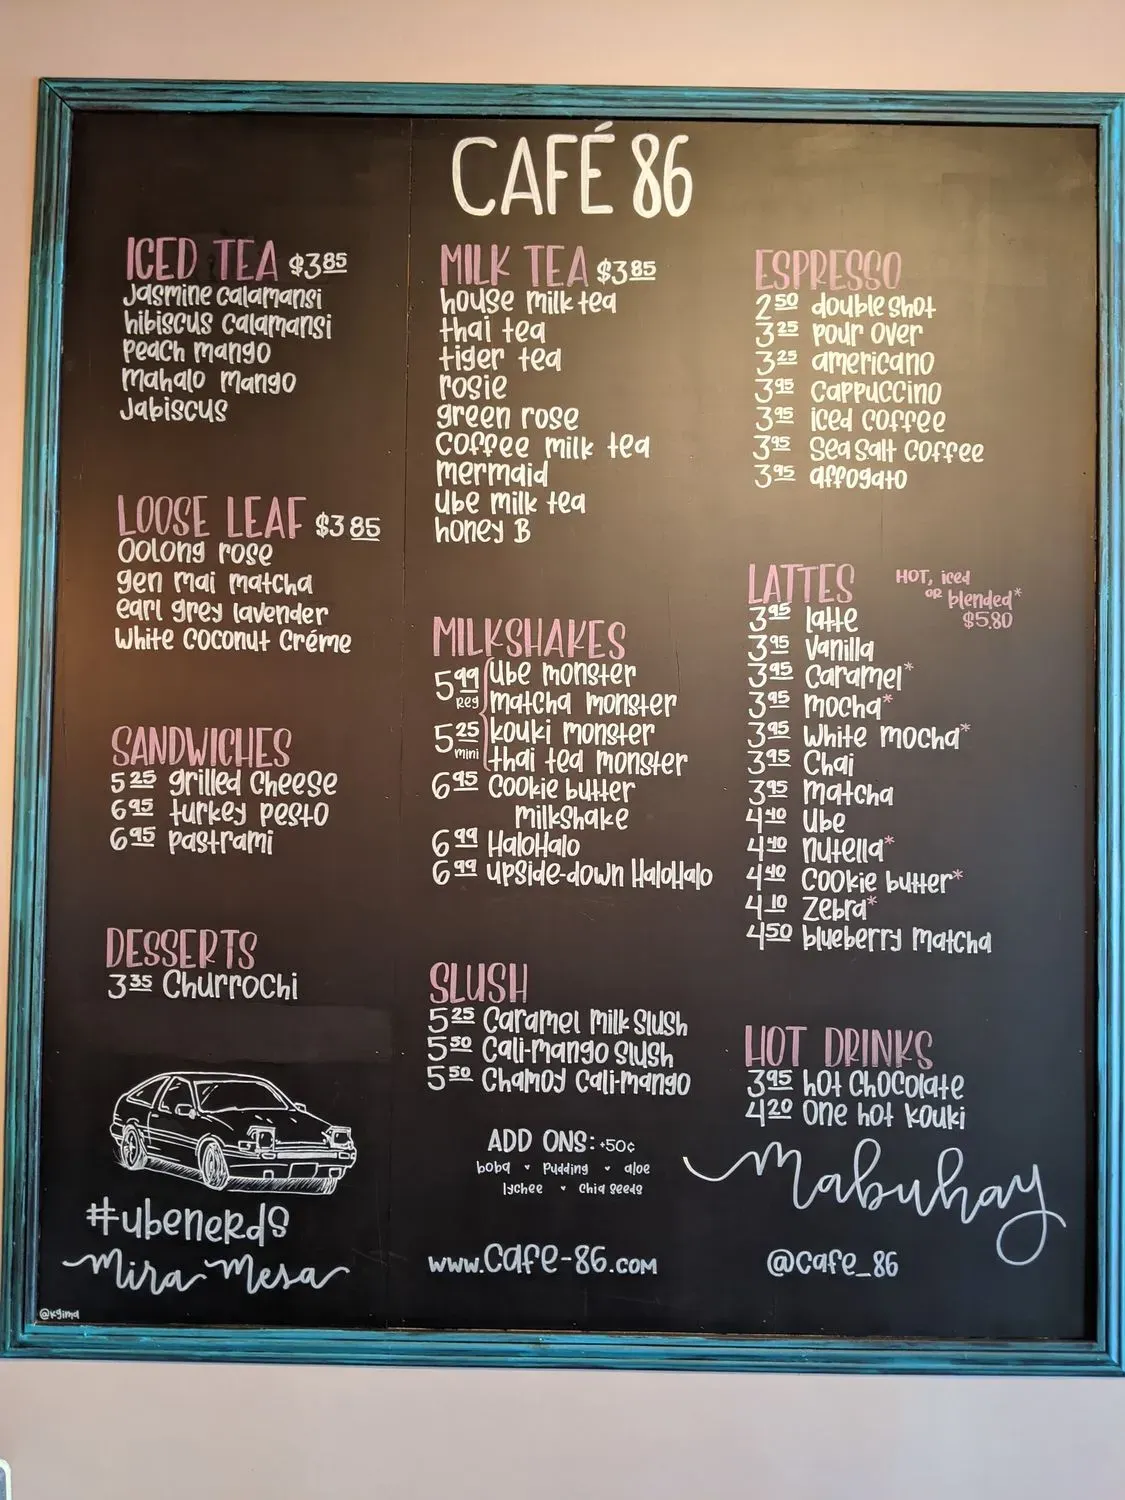 CAFÉ 86
ICED TEA $3.85
Jasmine calamansi
hibiscus calamansi
peach mango
mahalo mango
Jabiscus
LOOSE LEAF $3.85
Oolong rose
gen mai matcha
earl grey lavender
White coconut Créme
SANDWICHES
5.25 grilled cheese
6.95 turkey pesto
6.95 pastrami
DESSERTS
3.35 Churrochi
#ubenerds
Mira Mesa
@kgima
MILK TEA $3.85
house milk tea
thai tea
tiger tea
rosie
green rose
coffee milk tea
mermaid
ube milk tea
honey B
MILKSHAKES
5.99 reg
5.25 mini
Ube monster
matcha monster
kouki monster
thai tea monster
6.95 Cookie butter
milkshake
6.99 HaloHalo
6.99 upside-down HaloHalo
SLUSH
5.25 Caramel Milk Slush
5.50 Cali-mango Slush
5.50 Chamoy Cali-mango
ADD ONS: +50¢
boba • pudding • aloe
lychee • chia seeds
www.cafe-86.com
ESPRESSO
2.50 double shot
3.25 pour over
3.25 americano
3.95 Cappuccino
3.95 iced coffee
3.95 Sea Salt Coffee
3.95 affogato
LATTES
HOT, iced
or blended*
$5.80
3.95 latte
3.95 Vanilla
3.95 Caramel*
3.95 mocha*
3.95 White mocha*
3.95 Chai
3.95 matcha
4.40 Ube
4.40 nutella*
4.40 Cookie butter*
4.10 Zebra*
4.50 blueberry matcha
HOT DRINKS
3.95 hot chocolate
4.20 One hot kouki
Mabuhay
@cafe_86